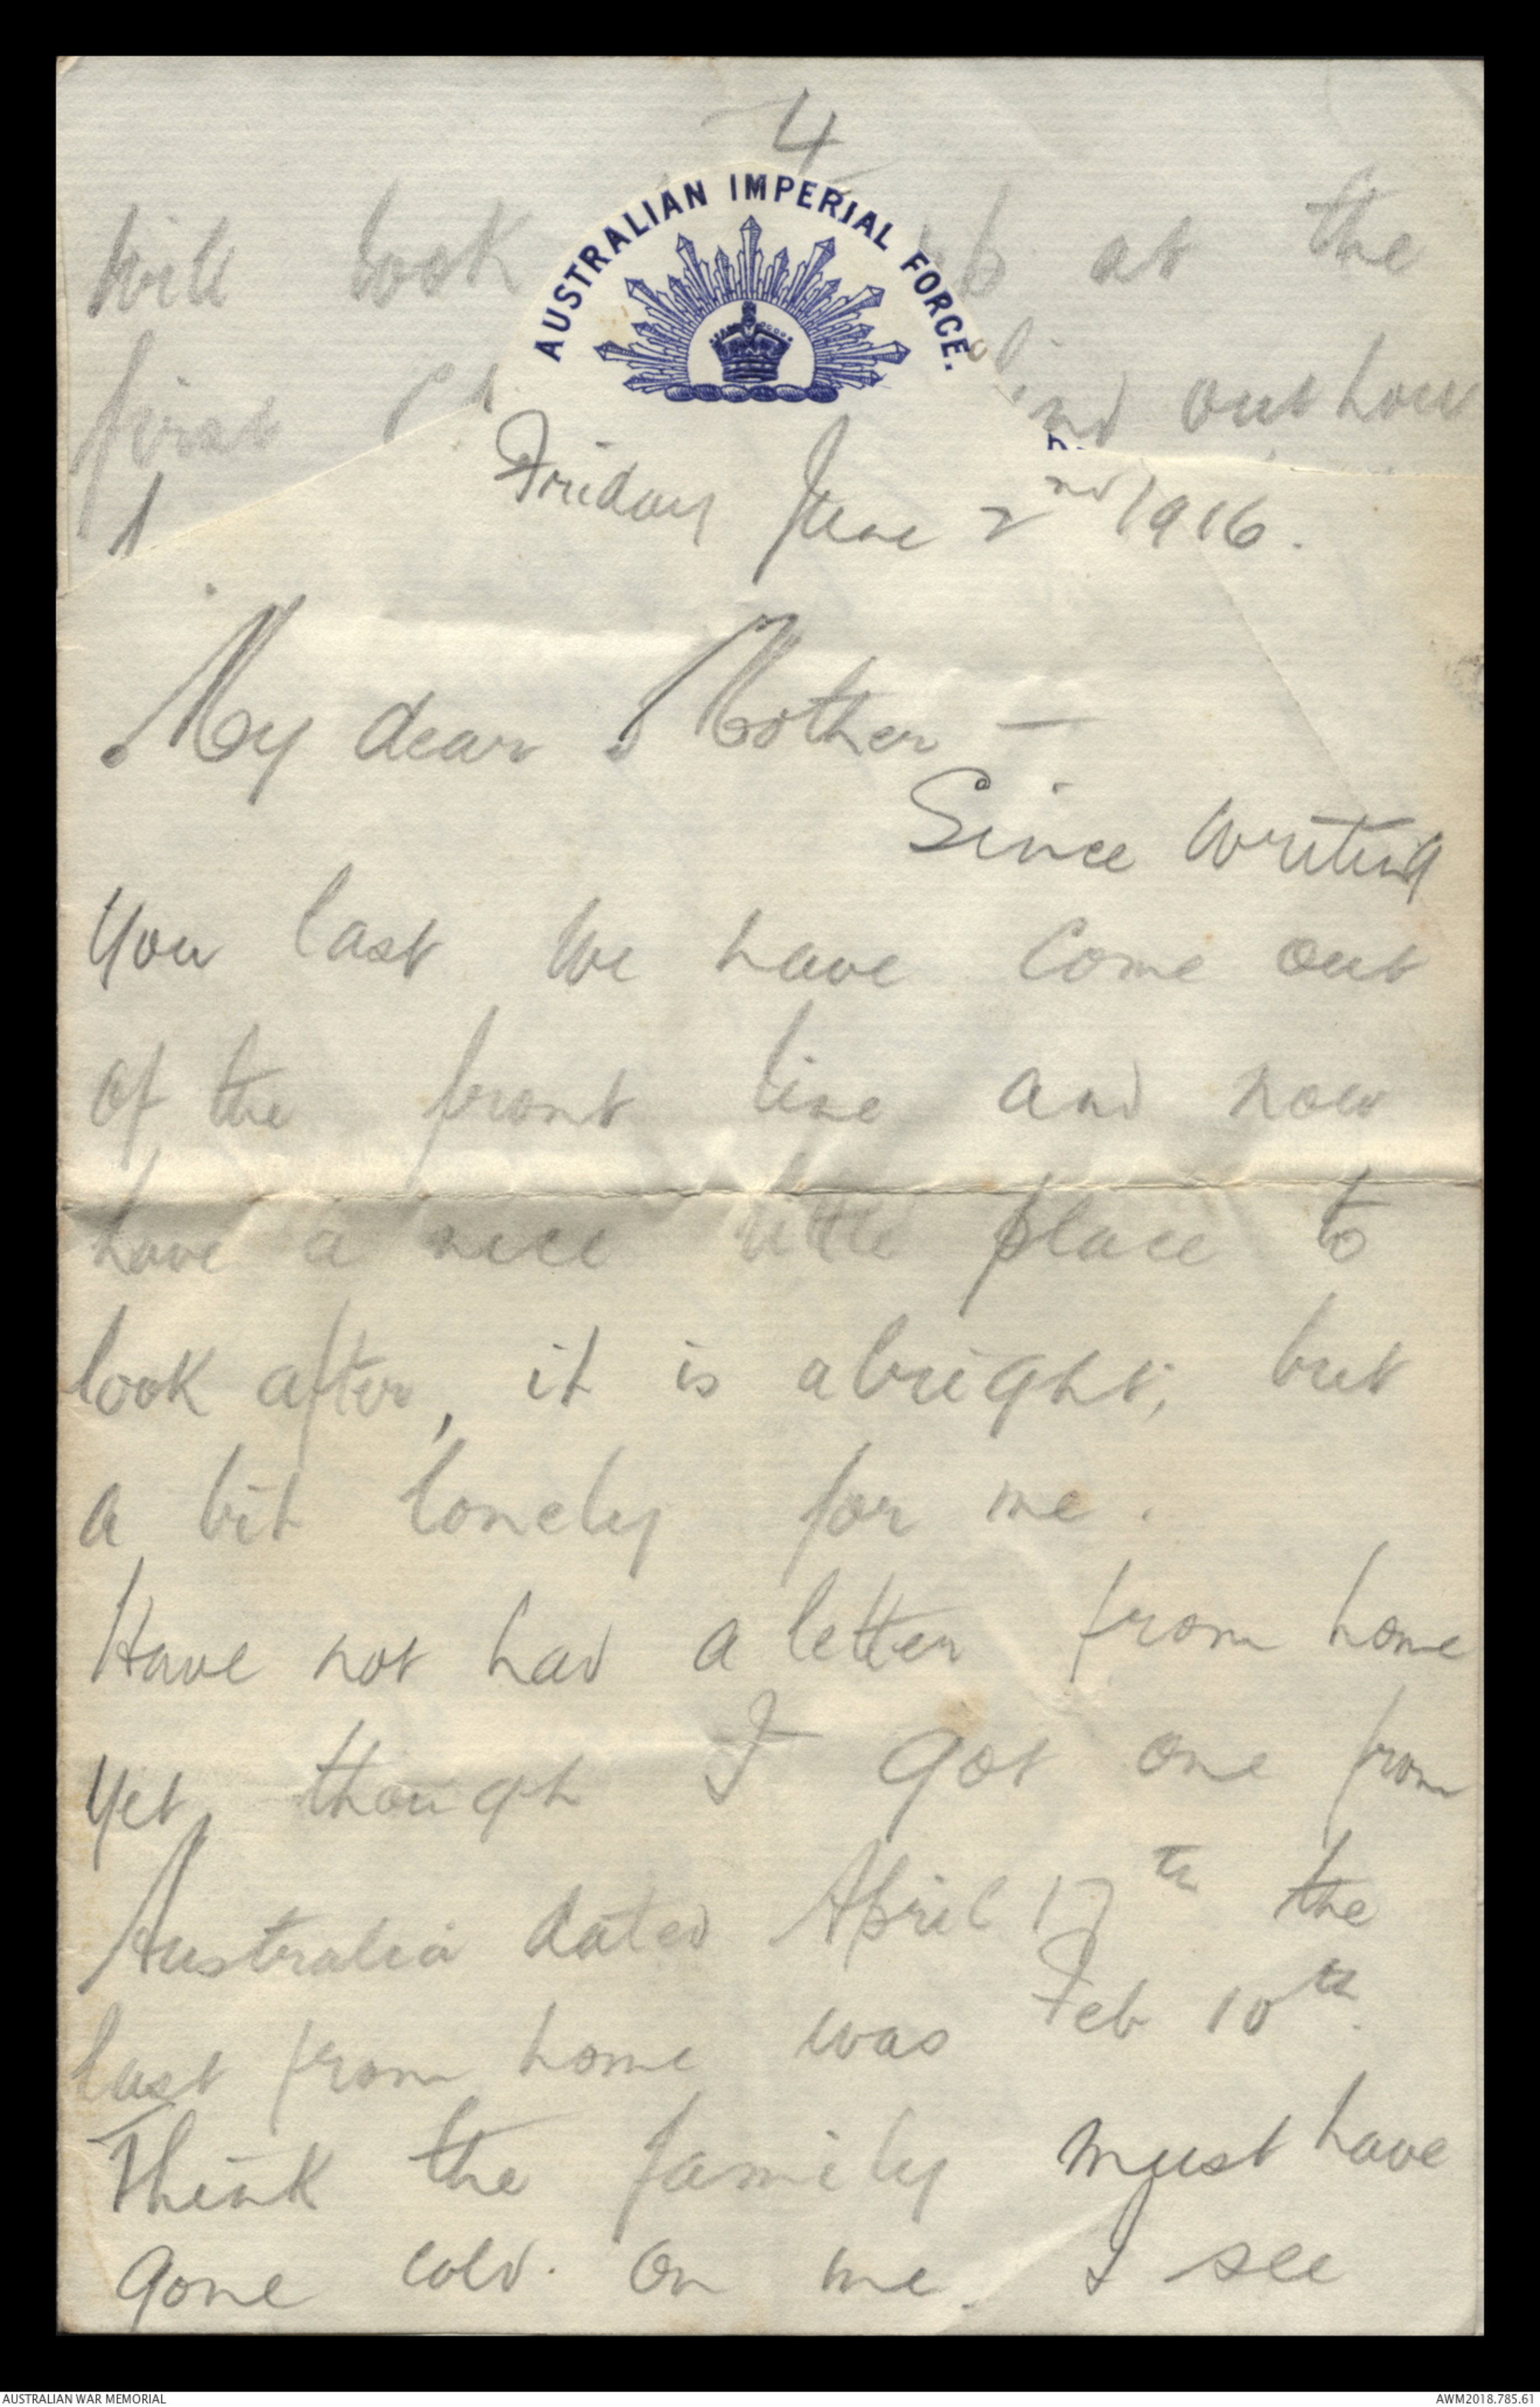 4
AUSTRALIAN IMPERIAL FORCE.
will look at the
first and out how
Friday June 2nd 1916.
My dear Mother —
Since writing
you last we have come out
of the front line and now
have a nice little place to
look after, it is alright; but
a bit lonely for me.
Have not had a letter from home
yet, though I got one from
Australia dated April 17th the
last from home was Feb 10th.
Think the family must have
gone cold. on me. I see
AUSTRALIAN WAR MEMORIAL
AWM2018.785.61